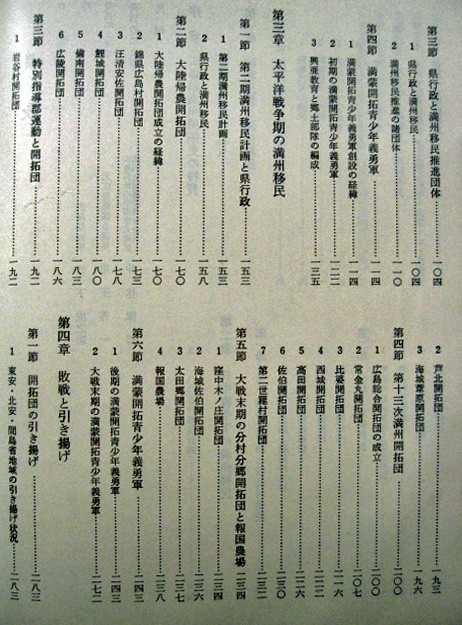 第三節 県行政と満州移民推進団体……一〇四
1 県行政と満州移民……一〇四
2 満州移民推進の諸団体……一一〇
第四節 満蒙開拓青少年義勇軍……一一四
1 満蒙開拓青少年義勇軍創設の経緯……一一四
2 初期の満蒙開拓青少年義勇軍……一二二
3 興亜教育と郷土部隊の編成……一三五
第三章 太平洋戦争期の満州移民
第一節 第二期満州移民計画と県行政……一五三
1 第二期満州移民計画……一五三
2 県行政と満州移民……一五八
第二節 大陸帰農開拓団……一七〇
1 大陸帰農開拓団成立の経緯……一七〇
2 錦県広島村開拓団……一七三
3 汪清安佐開拓団……一七八
4 鯉城開拓団……一八〇
5 備南開拓団……一八三
6 広陵開拓団……一八六
第三節 特別指導郡運動と開拓団……一九二
1 岩谷村開拓団……一九二
2 芦北開拓団……一九三
3 海城葦原開拓団……一九六
第四節 第十三次満州開拓団……二〇〇
1 広島総合開拓団の成立……二〇〇
2 常金丸開拓団……二〇七
3 比婆開拓団……二一六
4 西城開拓団……二二二
5 高田開拓団……二二六
6 佐伯開拓団……二三〇
7 第二世羅村開拓団……二三二
第五節 大戦末期の分村分郷開拓団と報国農場……二三四
1 窪中木ノ庄開拓団……二三四
2 海城佐伯開拓団……二三六
3 太田郷開拓団……二三七
4 報国農場……二三八
第六節 満蒙開拓青少年義勇軍……二四三
1 後期の満蒙開拓青少年義勇軍……二四三
2 大戦末期の満蒙開拓青少年義勇軍……二七二
第四章 敗戦と引き揚げ
第一節 開拓団の引き揚げ……二八三
1 東安・北安・間島省地域の引き揚げ状況……二八三